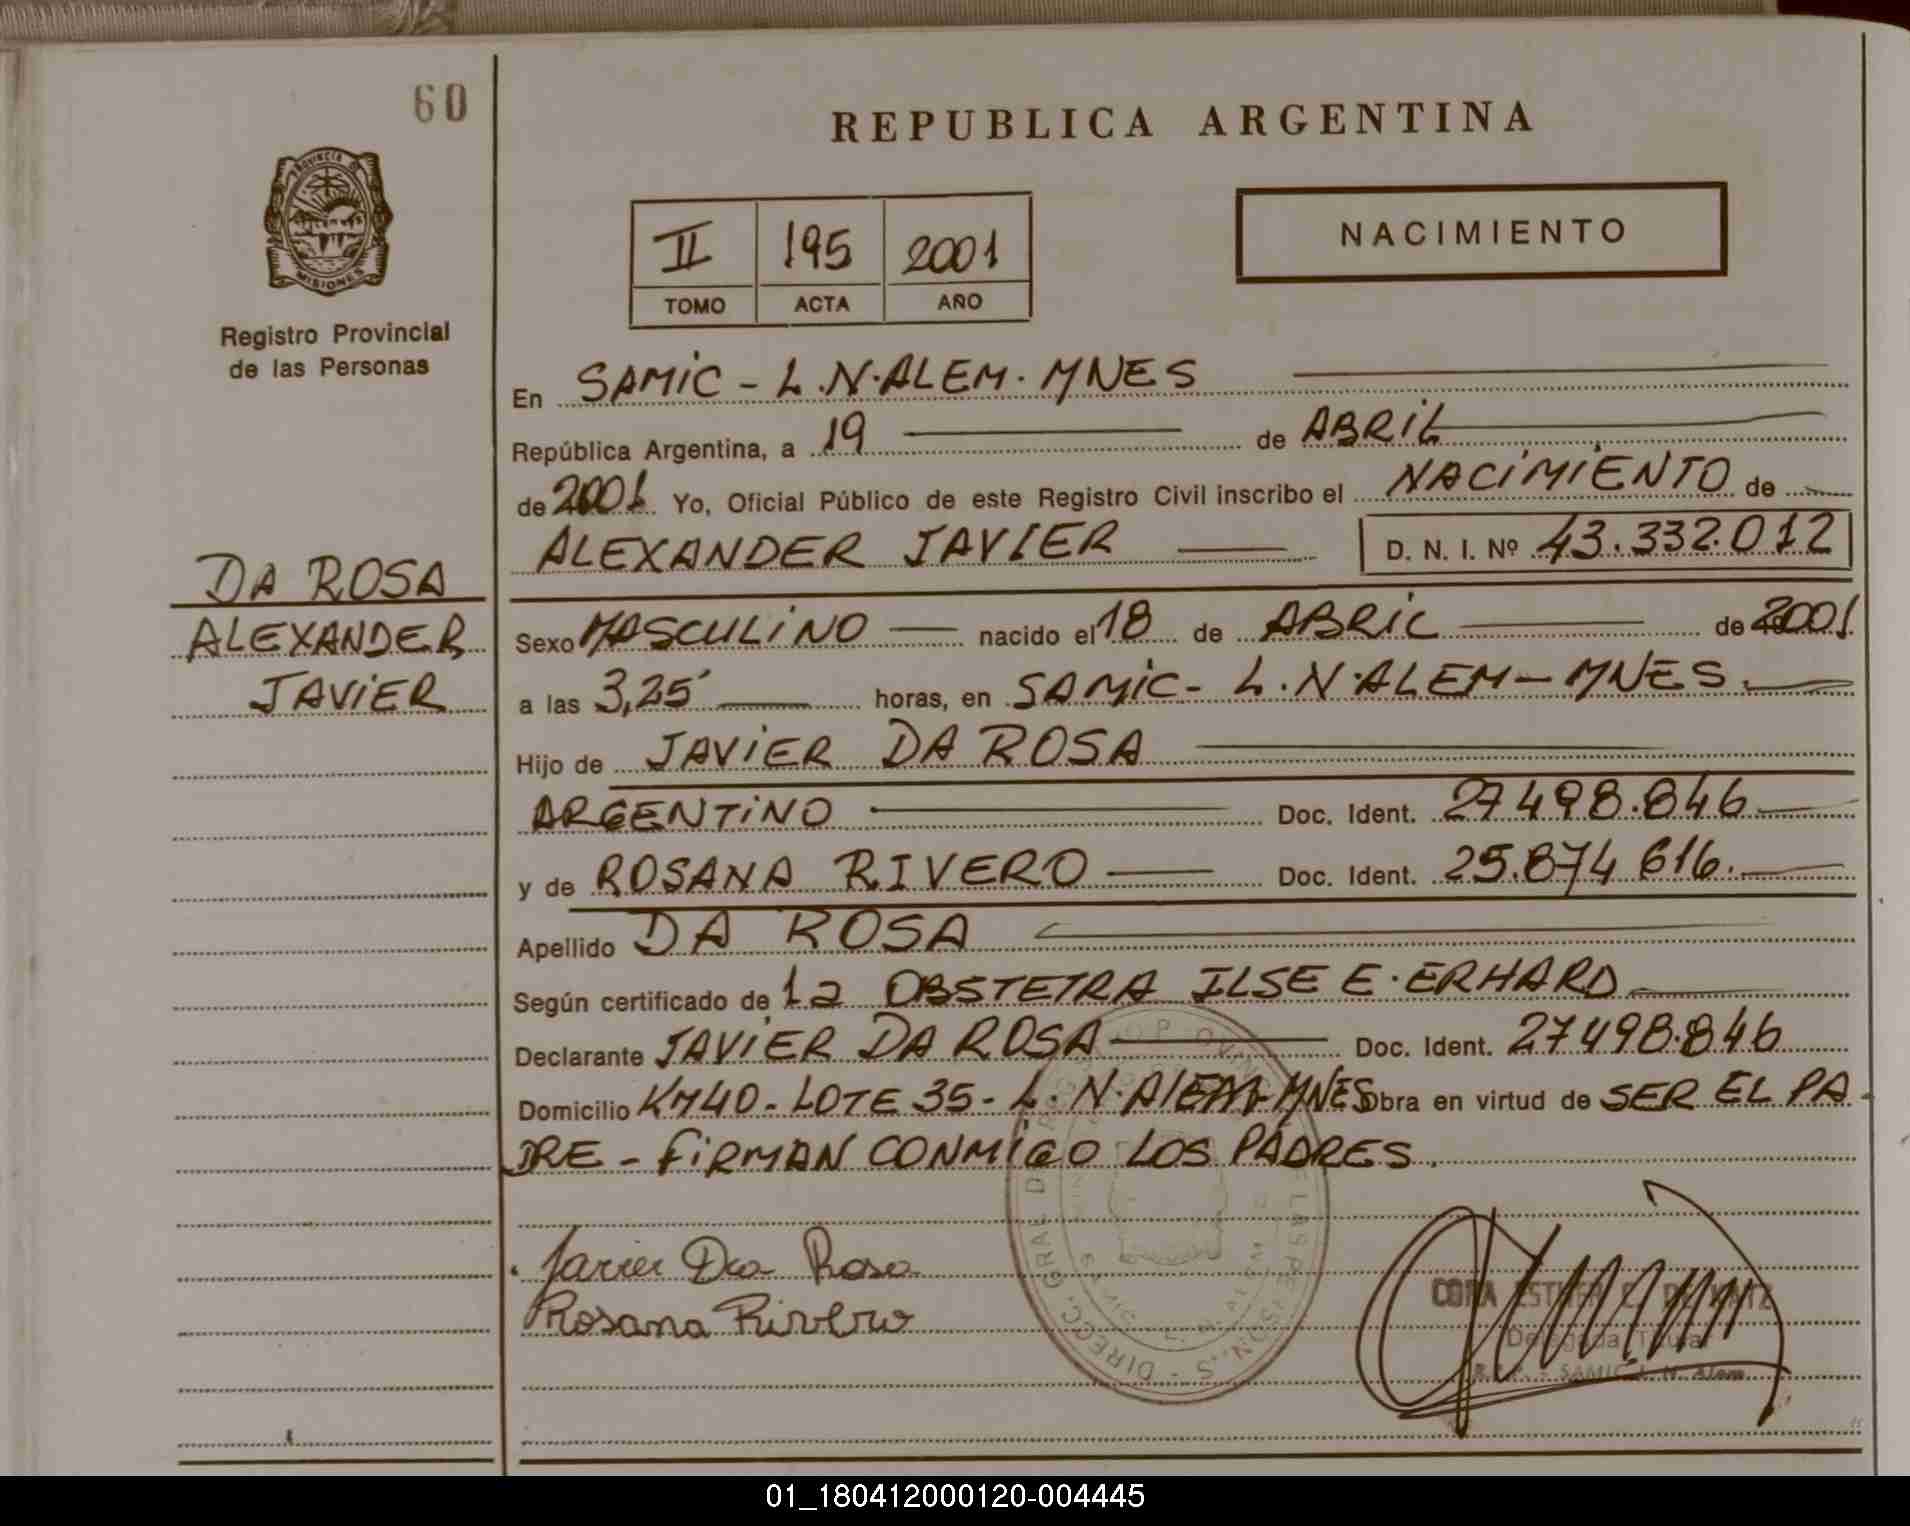 60
REPUBLICA ARGENTINA
PROVINCIA DE
MISIONES
Registro Provincial
de las Personas
II 195 2001
TOMO ACTA AÑO
NACIMIENTO
En SAMIC - L.N.ALEM. MNES
República Argentina, a 19 de ABRIL
de 2001 Yo, Oficial Público de este Registro Civil inscribo el NACIMIENTO de
ALEXANDER JAVIER D. N. I. Nº 43.332.012
DA ROSA
ALEXANDER
JAVIER
Sexo MASCULINO nacido el 18 de ABRIL de 2001
a las 3,25 horas, en SAMIC - L.N.ALEM - MNES.
Hijo de JAVIER DA ROSA
ARGENTINO Doc. Ident. 27498.846
y de ROSANA RIVERO Doc. Ident. 25.874 616.
Apellido DA ROSA
Según certificado de la OBSTETRA ILSE E. ERHARD
Declarante JAVIER DA ROSA Doc. Ident. 27498.846
Domicilio KM40 - LOTE 35 - L.N.ALEM - MNES Obra en virtud de SER EL PA-
DRE - FIRMAN CONMIGO LOS PADRES.
Javier Da Rosa
Rosana Rivero
CORA ESTHER C. DE KATZ
Delegada Titular
R.P.P. - SAMIC L. N. Alem
01_180412000120-004445